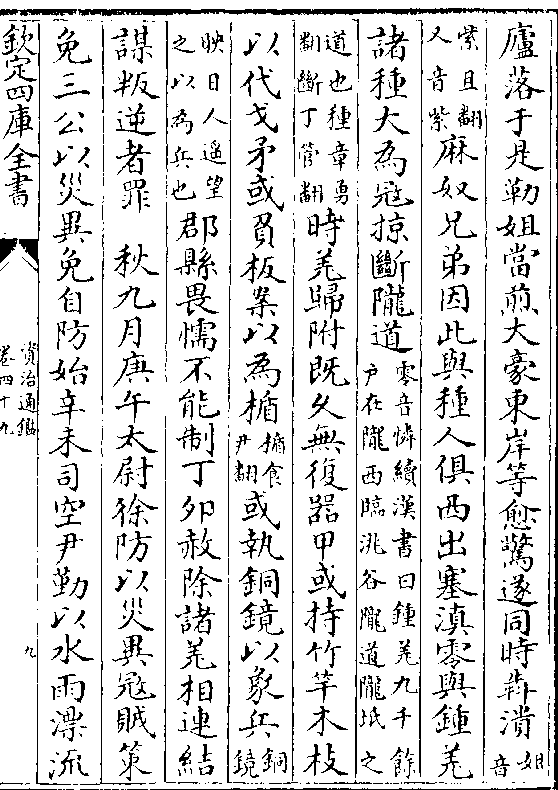 廬落于是勒姐當煎大豪東岸等愈驚遂同時犇潰姐音
紫且翻又音紫麻奴兄弟因此與種人俱西出塞滇零與鍾羌
諸種大為冦掠斷隴道零音憐續漢書曰鍾羌九千餘户在隴西臨洮谷隴道隴坻之
道也種章勇翻斷丁管翻時羌歸附既久無復器甲或持竹竿木枝
以代戈矛或負板案以為楯楯食尹翻或執銅鏡以象兵銅鏡
映日人遥望之以為兵也郡縣畏懦不能制丁卯赦除諸羌相連結
謀叛逆者罪 秋九月庚午太尉徐防以災異冦賊策
免三公以災異免自防始辛未司空尹勤以水雨漂流
欽定四庫全書
資治通鑑
卷四十九
九